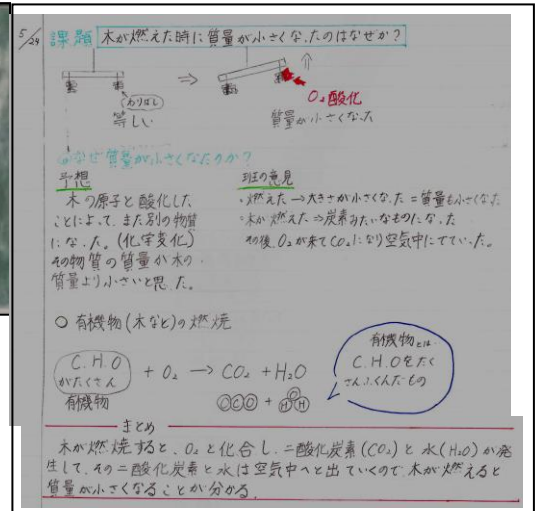 5/24
課題 木が燃えた時に質量が小さくなったのはなぜか?
わりばし
等しい
⇒
O₂酸化
質量が小さくなった
なぜ質量が小さくなったのか?
予想
木の原子と酸化した
ことによって、また別の物質
になった。(化学変化)
その物質の質量が木の
質量より小さいと思った。
班の意見
・燃えた→大きさが小さくなった=質量も小さくなった
・木が燃えた⇒炭素みたいなものになった
その後、O₂が来てCO₂になり空気中にでていった。
○ 有機物(木など)の燃焼
C.H.O
がたくさん
有機物
+ O₂ → CO₂ + H₂O
OCO + HOH
有機物とは
C.H.Oをたく
さんふくんだもの
まとめ
木が燃焼すると、O₂と化合し、二酸化炭素(CO₂)と水(H₂O)が発
生して、その二酸化炭素と水は空気中へと出ていくので木が燃えると
質量が小さくなることが分かる。